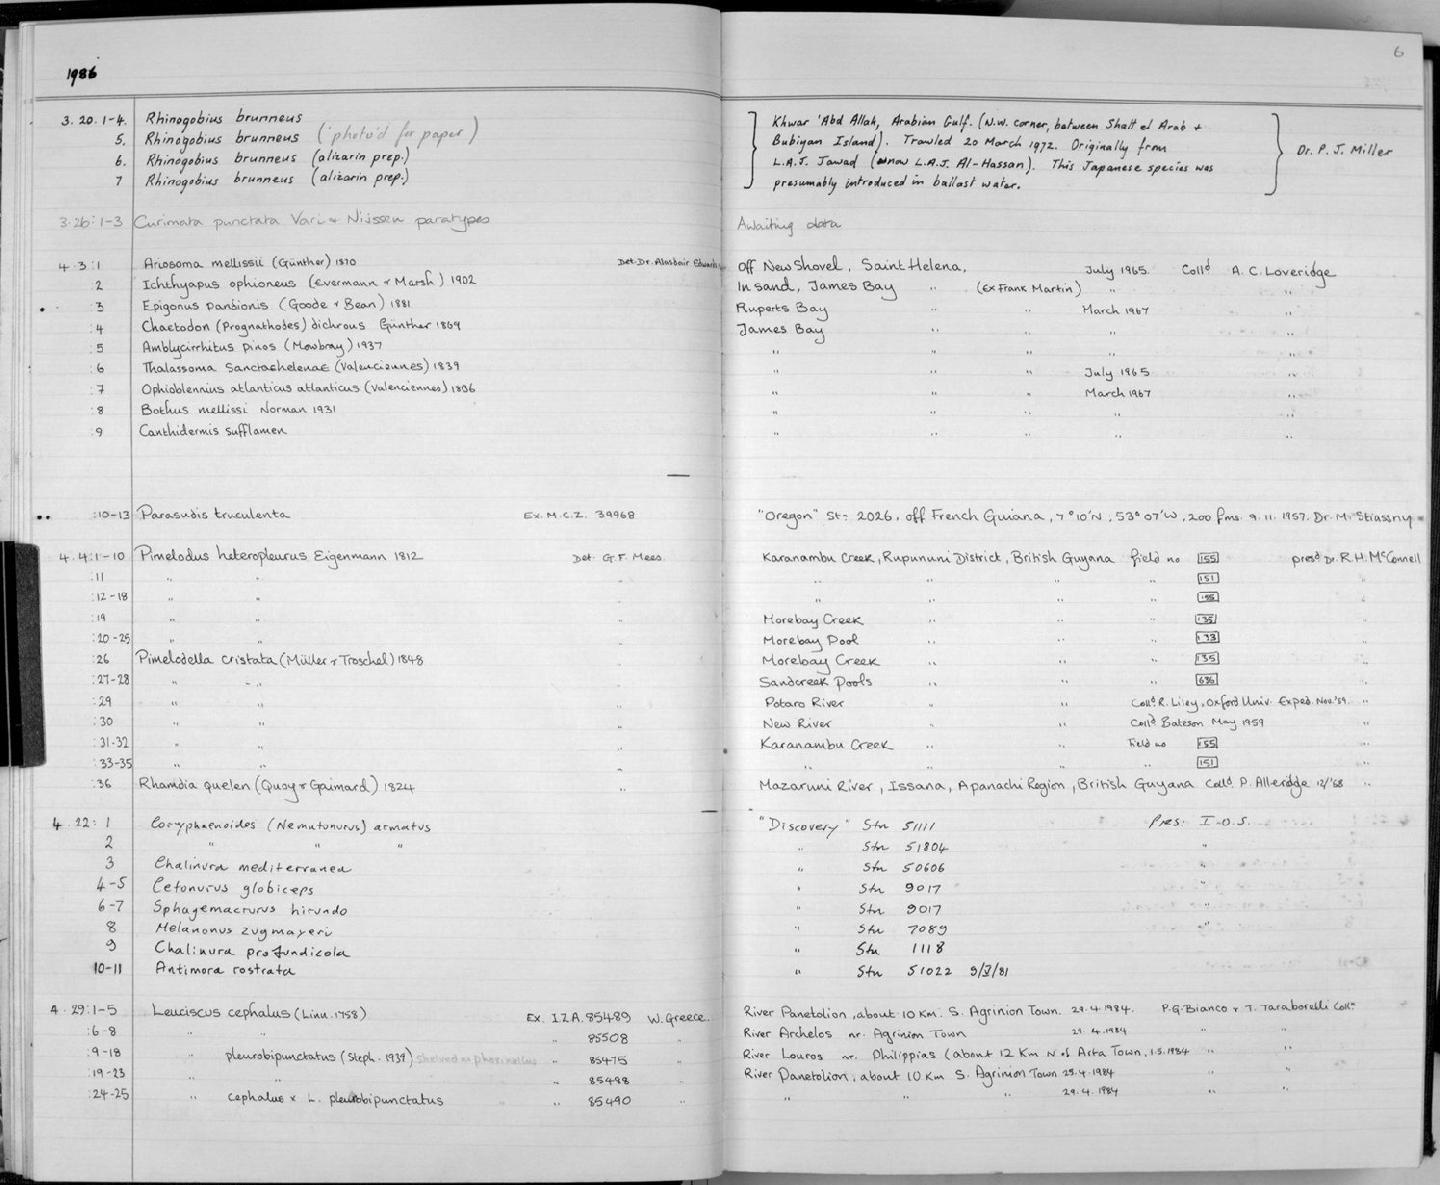 6
1986
3.20.1-4. Rhinogobius brunneus
5. Rhinogobius brunneus (photo'd for paper)
6. Rhinogobius brunneus (alizarin prep.)
7 Rhinogobius brunneus (alizarin prep.)
Khwar 'Abd Allah, Arabian Gulf. (N.W. corner, between Shatt el Arab +
Bubiyan Island). Trawled 20 March 1972. Originally from
L.A.J. Jawad (now L.A.J. Al-Hassan). This Japanese species was
presumably introduced in ballast water.
Dr. P. J. Miller
3.26:1-3 Curimata punctata Vari + Nijssen paratypes Awaiting data
4.3:1 Ariosoma mellissii (Günther) 1870 Det. Dr. Alasdair Edwards Off New Shovel, Saint Helena, July 1965. Colld A.C. Loveridge
2 Ichthyapus ophioneus (Evermann + Marsh) 1902 In sand, James Bay " (Ex Frank Martin) " "
:3 Epigonus pandionis (Goode + Bean) 1881 Ruperts Bay " " March 1967 "
:4 Chaetodon (Prognathodes) dichrous Günther 1869 James Bay " " " "
:5 Amblycirrhitus pinos (Mowbray) 1937 " " " " "
:6 Thalassoma sanctaehelenae (Valenciennes) 1839 " " " July 1965 "
:7 Ophioblennius atlanticus atlanticus (Valenciennes) 1836 " " " March 1967 "
:8 Bothus mellissi Norman 1931 " " " " "
:9 Canthidermis sufflamen " " " " "
:10-13 Parasudis truculenta Ex. M.C.Z. 39968 "Oregon" St: 2026, off French Guiana, 7°10'N, 53°07'W, 200 fms. 9.11.1957. Dr. M. Strassny
4.4:1-10 Pimelodus heteropleurus Eigenmann 1812 Det. G.F. Mees. Karanambu Creek, Rupununi District, British Guyana field no 155 presd Dr. R.H. McConnell
:11 " " " " " " " 151 "
:12-18 " " " " " " " 155 "
:19 " " " Morebay Creek " " " 135 "
:20-25 " " " Morebay Pool " " " 133 "
:26 Pimelodella cristata (Müller + Troschel) 1848 " Morebay Creek " " " 135 "
:27-28 " " " Sandcreek Pools " " " 636 "
:29 " " " Potaro River " " Colld. R. Liley, Oxford Univ. Exped. Nov. '59. "
:30 " " " New River " " Colld Bateson May 1959 "
:31-32 " " " Karanambu Creek " " field no 155 "
:33-35 " " " " " " " 151 "
:36 Rhamdia quelen (Quoy + Gaimard) 1824 " Mazaruni River, Issana, Apanachi Region, British Guyana Colld. P. Alleridge 12/'68 "
4.22:1 Coryphaenoides (Nematonurus) armatus "Discovery" Stn 51111 Pres: I.O.S.
2 " " " " Stn 51804 "
3 Chalinura mediterranea " Stn 50606 "
4-5 Cetonurus globiceps " Stn 9017 "
6-7 Sphagemacrurus hirundo " Stn 9017 "
8 Melanonus zugmayeri " Stn 7089 "
9 Chalinura profundicola " Stn 1118
10-11 Antimora rostrata " Stn 51022 9/V/81
4.29:1-5 Leuciscus cephalus (Linn. 1758) Ex. I.Z.A. 85489 W. Greece. River Panetolion, about 10 Km. S. Agrinion Town. 29.4.1984. P.G. Bianco + T. Taraborelli Colln
:6-8 " " " 85508 " River Archelos nr. Agrinion Town 29.4.1984 " "
:9-18 " pleurobipunctatus (Steph. 1939) shelved as phoxinellus " 85475 " River Louros nr. Philippias (about 12 Km N of Arta Town, 1.5.1984 " "
:19-23 " " " 85488 " River Panetolion, about 10 Km S. Agrinion Town 29.4.1984 " "
:24-25 " cephalus x L. pleurobipunctatus " 85490 " " " " 29.4.1984 " "